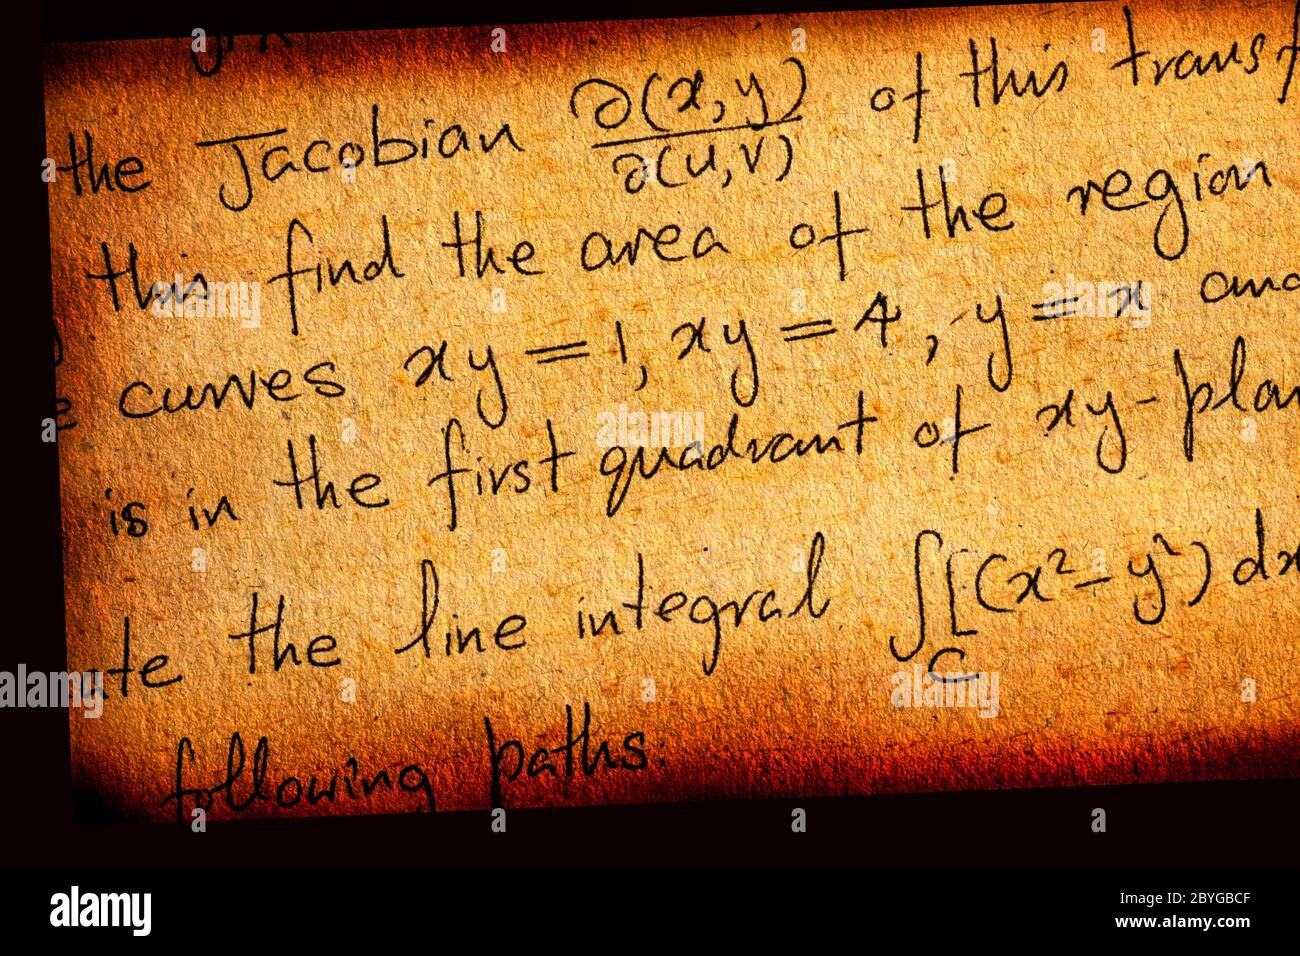 the Jacobian ∂(x,y)/∂(u,v) of this transf
this find the area of the region
curves xy=1, xy=4, y=x and
is in the first quadrant of xy-plan
ate the line integral ∫_C [(x²-y²) dx
following paths:
alamy
Image ID: 2BYGBCF
www.alamy.com